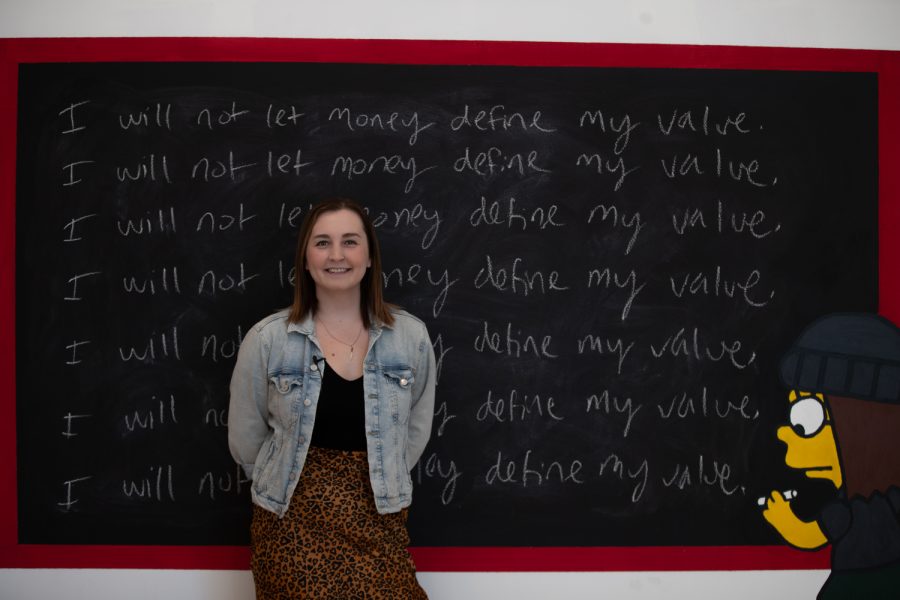 I will not let money define my value.
I will not let money define my value.
I will not let money define my value.
I will not money define my value.
I will not define my value.
I will not define my value.
I will not define my value.